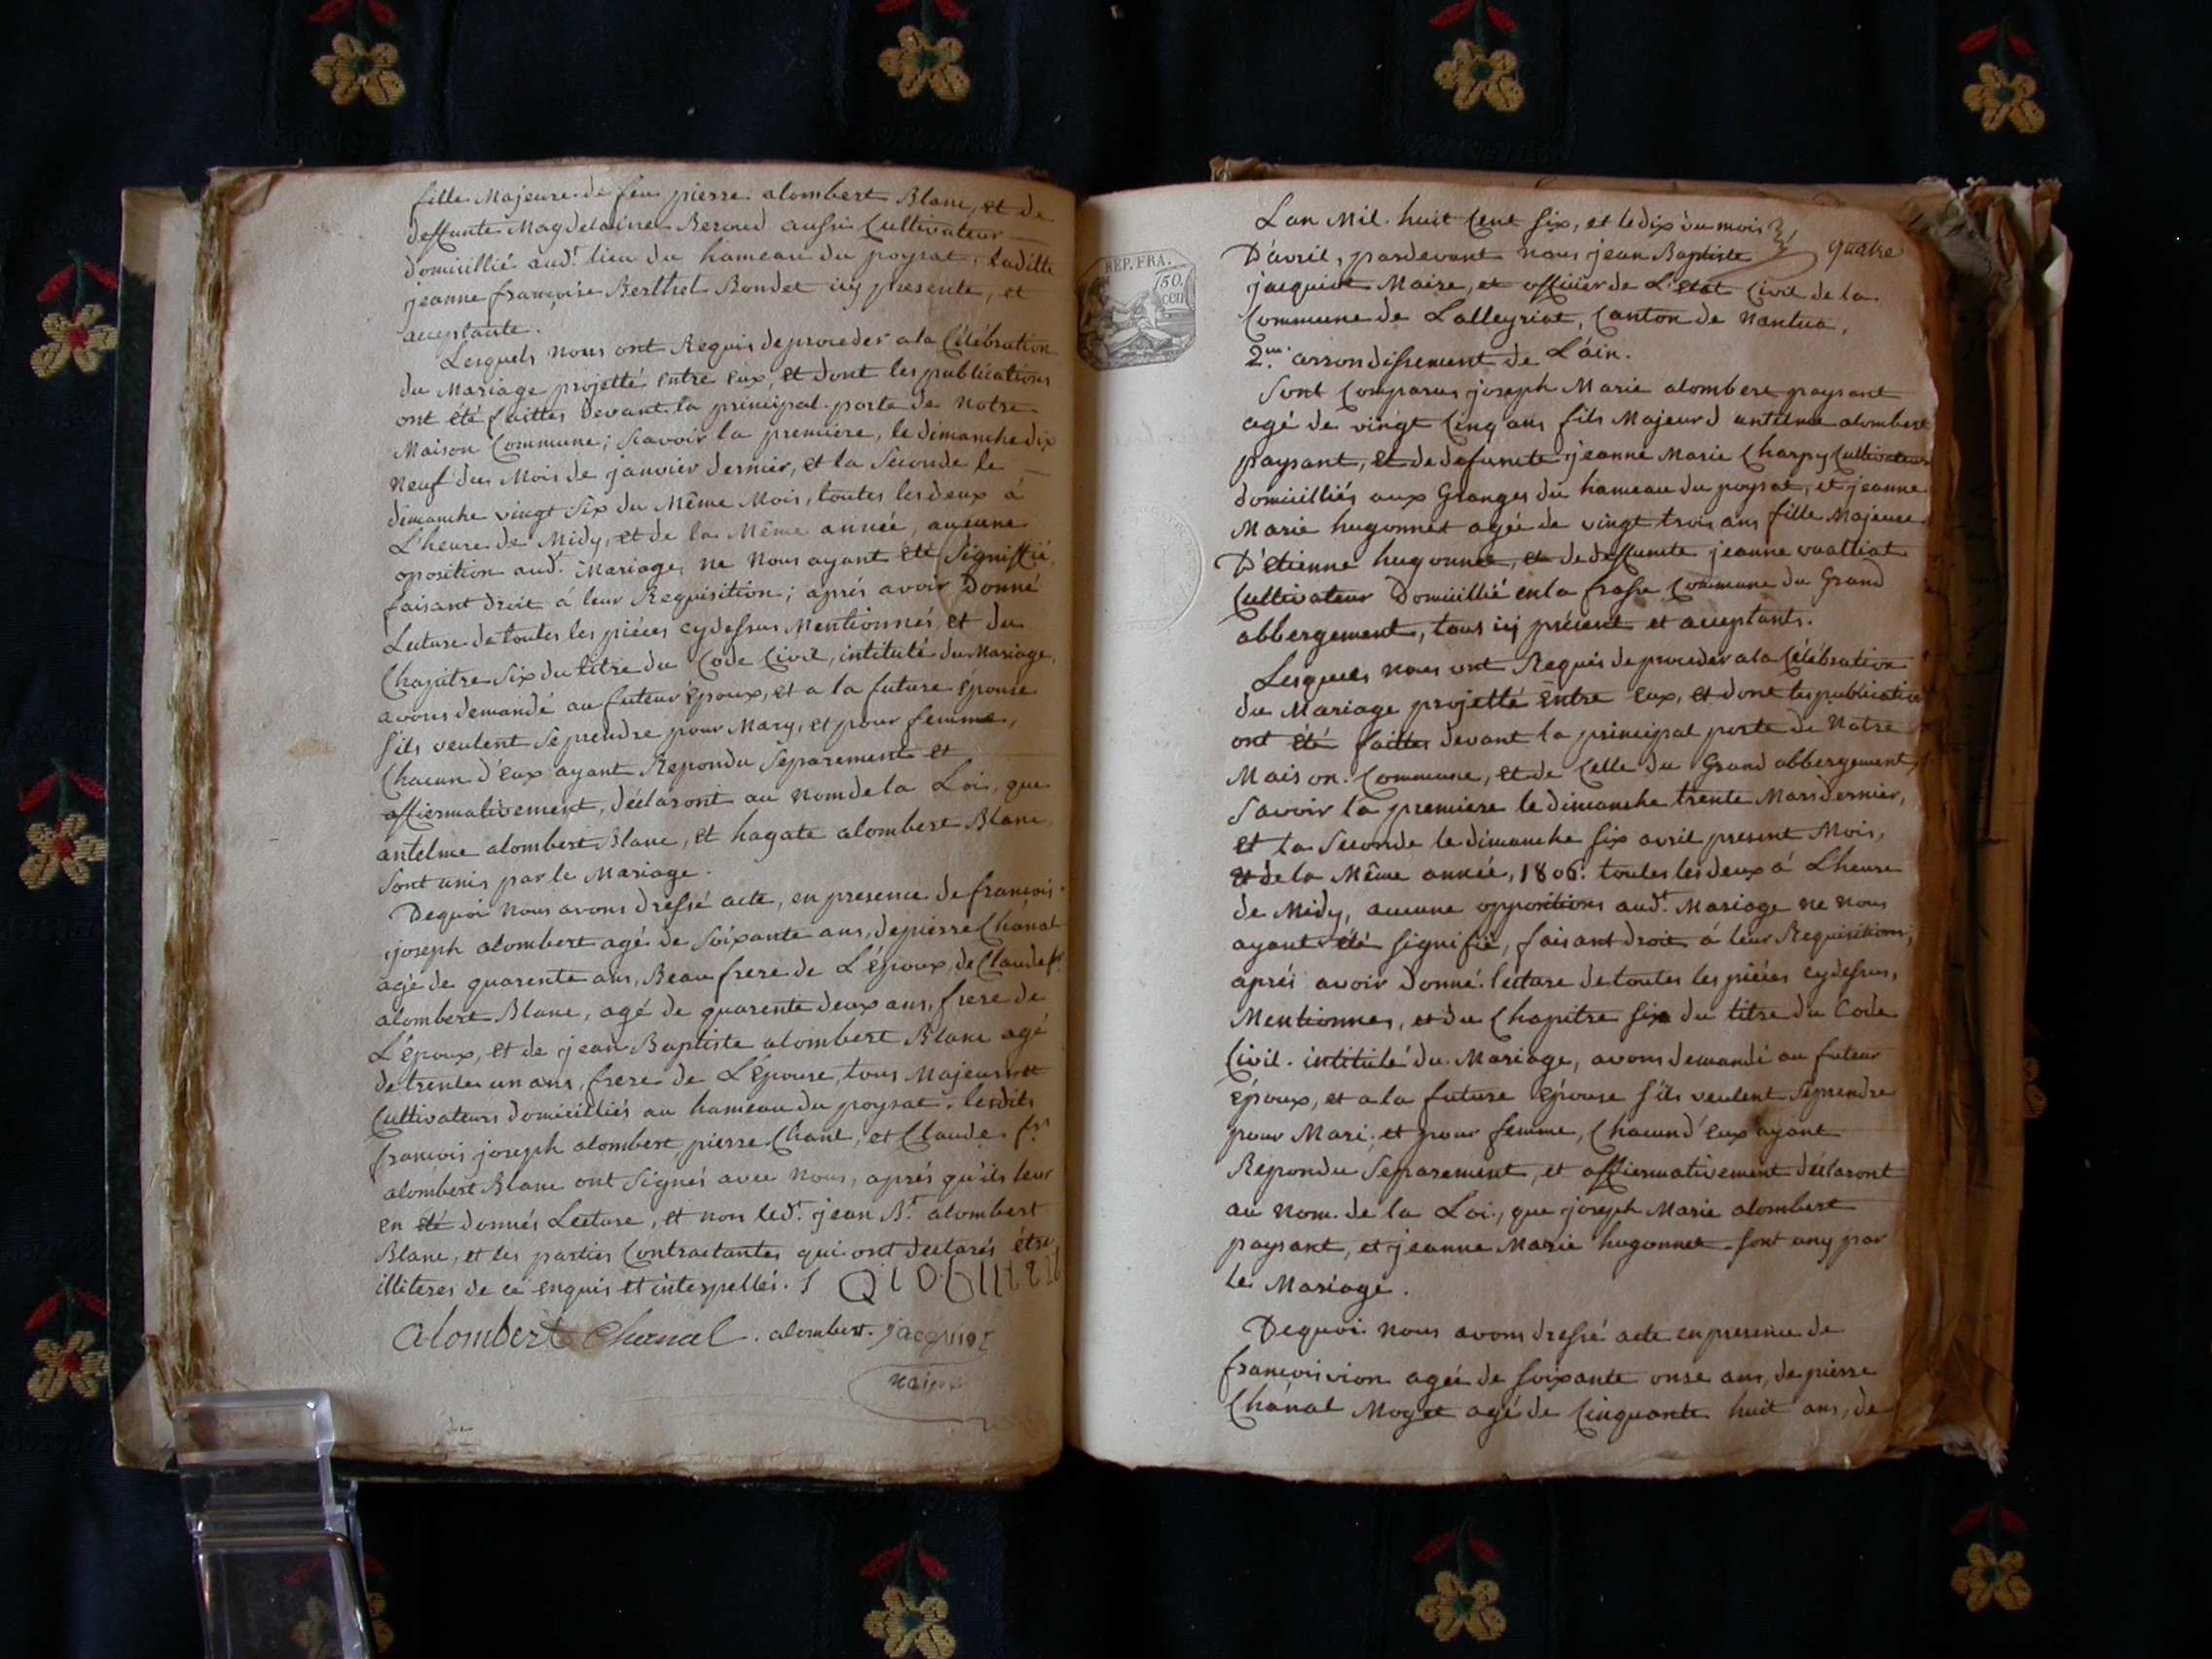 fille Majeure de feu pierre alombert Blanc, et de
deffunte Magdelaine Beroud aussi Cultivateur
domicillié aud.t lieu du hameau du poysat, laditte
jeanne françoise Berthet Bondet icy presente, et
acceptante.
Lesquels nous ont Requis de proceder a la Célébration
du Mariage projetté entre eux, et dont les publications
ont été faittes devant la principal porte de Notre
Maison Commune; Scavoir la premiere, le dimanche dix
neuf du Mois de janvier dernier, et la Seconde le
dimanche vingt Six du Même Mois, toutes les deux á
L'heure de Midy, et de la Même année, aucune
oposition aud.t Mariage ne Nous ayant été Signiffié,
faisant droit á leur Requisition; aprés avoir Donné
Lecture de toutes les piéces cydessus Mentionnés, et du
Chapitre Six du titre du Code Civil, intitulé du Mariage,
avons demandé au futeur époux, et a la future épouse
s'ils veulent Se prendre pour Mary, et pour femme,
Chacun d'eux ayant Repondu Séparement et
affiermativement, déclaront au nom de la Loi, que
antelme alombert Blanc, et hagate alombert Blanc,
Sont unis par le Mariage.
Dequoi Nous avons dressé acte, en presence de françois
joseph alombert agé de Soixante ans, de pierre Chanal
agé de quarente ans, Beau frere de L'époux, de Claude f.s
alombert Blanc, agé de quarente deux ans, frere de
L'époux, et de jean Baptiste alombert Blanc agé
de trente un ans, frere de L'épouse, tous Majeurs et
Cultivateurs domicilliés au hameau du poysat. lesdits
françois joseph alombert, pierre Chanl, et Claude f.s
alombert Blanc ont Signés avec nous, aprés qu'ils leur
en été donnés Lecture, et non led.t jean B.t alombert
Blanc, et les parties Contractantes qui ont declarés être
illiteres de ce enquis et interpellés.
alombert Chanal. alombert. jacquiot
maire
Lan Mil huit Cent Six, et le dix du mois
D'avril, pardevant nous jean Baptiste
quatre
REP. FRA.
50
cen
jacquiot Maire, et officier de L'etat Civil de la
Commune de Lalleyriat, Canton de Nantua,
2.me arrondissement de L'ain.
Sont Comparus joseph Marie alombert paysant
agé de vingt Cinq ans fils Majeur d'antelme alombert
paysant, et de defuncte jeanne Marie Charpy Cultivateurs
domicilliés aux Granges du hameau du poysat, et jeanne
Marie hugonnet agée de vingt trois ans fille Majeure
D'étienne hugonnet, et de deffuncte jeanne vuattiat
Cultivateur Domicillié en la frasse Commune du Grand
abbergement, tous icj présent et acceptants.
Lesquels nous ont Requis de proceder a la Célébration
du Mariage projetté entre eux, et dont les publication
ont été faittes devant la principal porte de Notre
Maison Commune, et de Celle du Grand abbergement,
Savoir la premiere le dimanche trente Mars dernier,
et la Seconde le dimanche Six avril present Mois,
et de la Même année, 1806. toutes les deux á Lheure
de Midy, aucune oppositions aud.t Mariage ne nous
ayant été signifié, faisant droit á leur Requisition,
aprés avoir donné lecture de toutes les piéces cydessus,
Mentionnes, et du Chapitre Six du titre du Code
Civil. intitulé du Mariage, avons demandé au futeur
époux, et a la future épouse s'ils veulent Se prendre
pour Mari, et pour femme, Chacun d'eux ayant
Repondu Séparement, et affiermativement déclaront
au nom de la Loi, que joseph Marie alombert
paysant, et jeanne Marie hugonnet Sont uny par
le Mariage.
Dequoi nous avons dressé acte en presence de
françois vion agée de Soixante onse ans, de pierre
Chánal Moget agé de Cinquante huit ans, de